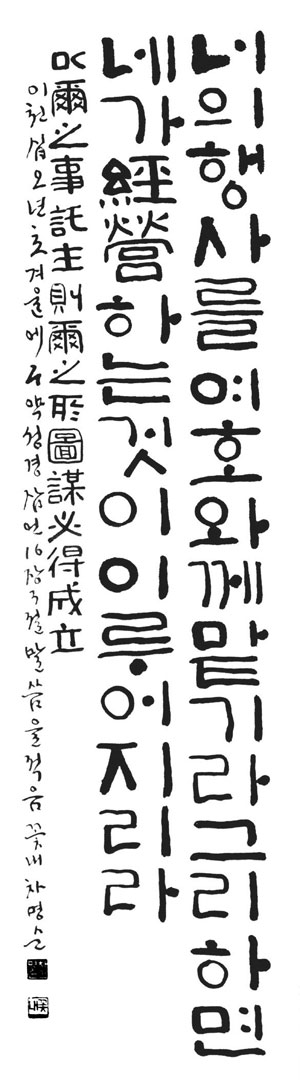 너의행사를여호와께맡기라그리하면
네가經營하는것이이루어지리라
以爾之事託主則爾之所圖謀必得成立
이천십오년초겨울에구약성경잠언16장3절말씀을적음꽃내차명순